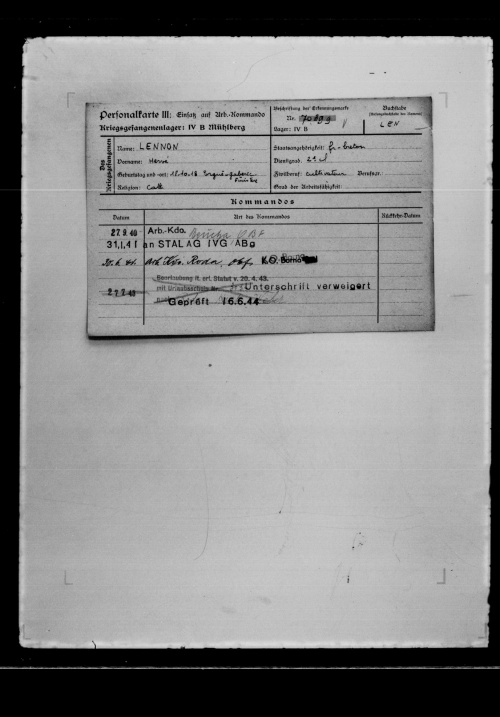 Personalkarte III: Einsatz auf Arb.-Kommando
Kriegsgefangenenlager: IV B Mühlberg
Beschriftung der Erkennungsmarke
Nr.
Lager: IV B
Buchstabe
LEN
Des Kriegsgefangenen
Name: LENNON
Vorname: Hervé
Geburtstag und -ort: 18.10.18
Religion: Cath
Staatsangehörigkeit: fr. breton
Dienstgrad: 2e cl
Zivilberuf: cultivateur Berufsnr.
Grad der Arbeitsfähigkeit:
Kommandos
Datum Art des Kommandos Rückkehr-Datum
27 9 40 Arb.-Kdo.
31.1.41 an STALAG IVG/ABg
Arb. Kdo. Roda,
Beurlaubung lt. erl. Statut v. 20. 4. 43.
27 7 43 mit Urlaubsschein Nr. Unterschrift verweigert
Geprüft 16.6.44